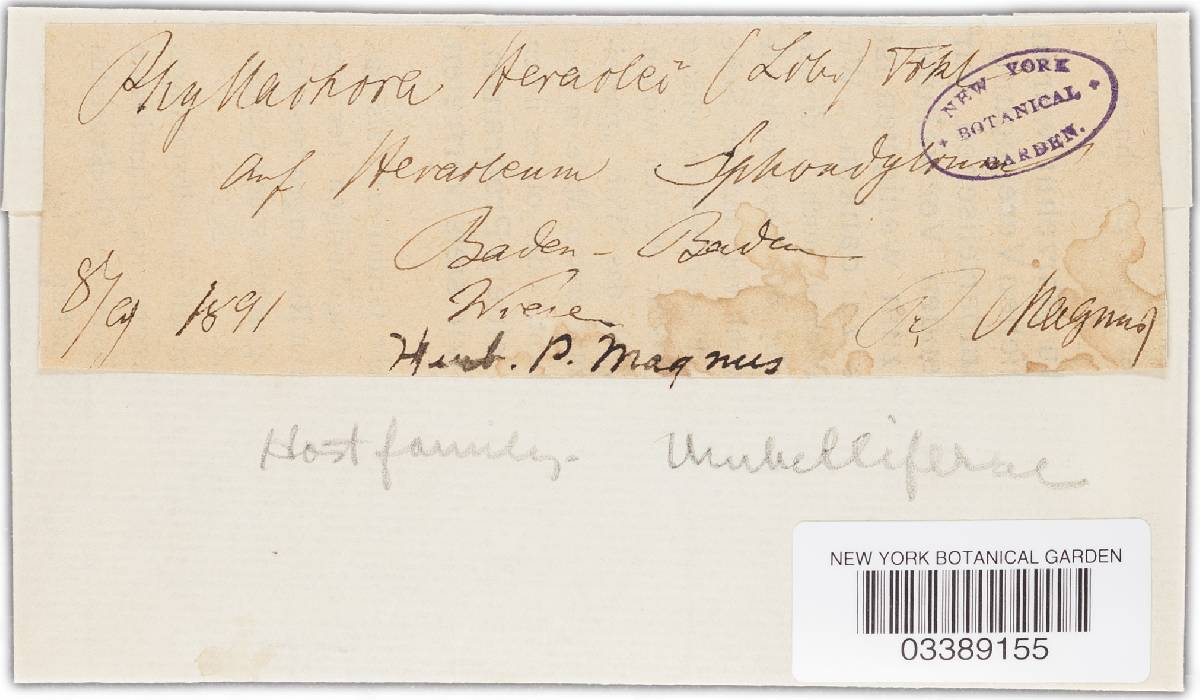 Phyllachora Heraclei (Lib.) Fckl
NEW YORK
BOTANICAL
GARDEN.
auf Heracleum Sphondylium
Baden-Baden
8/9 1891 Wiese P. Magnus
Herb. P. Magnus
Host family- Umbelliferae
NEW YORK BOTANICAL GARDEN
03389155